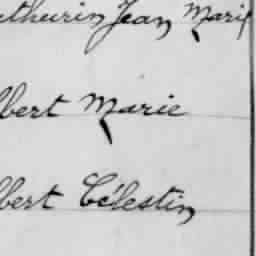 athurin Jean Marie
bert Marie
bert Célestin